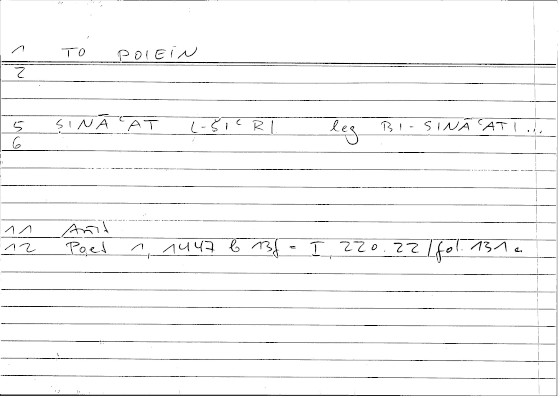 1 TO POIEIN
2
5 ṢINĀʿAT L-ŠIʿRI leg BI-ṢINĀʿATI...
6
11 Arist
12 Poet 1, 1447 b 13f = I, 220.22 / fol. 131a